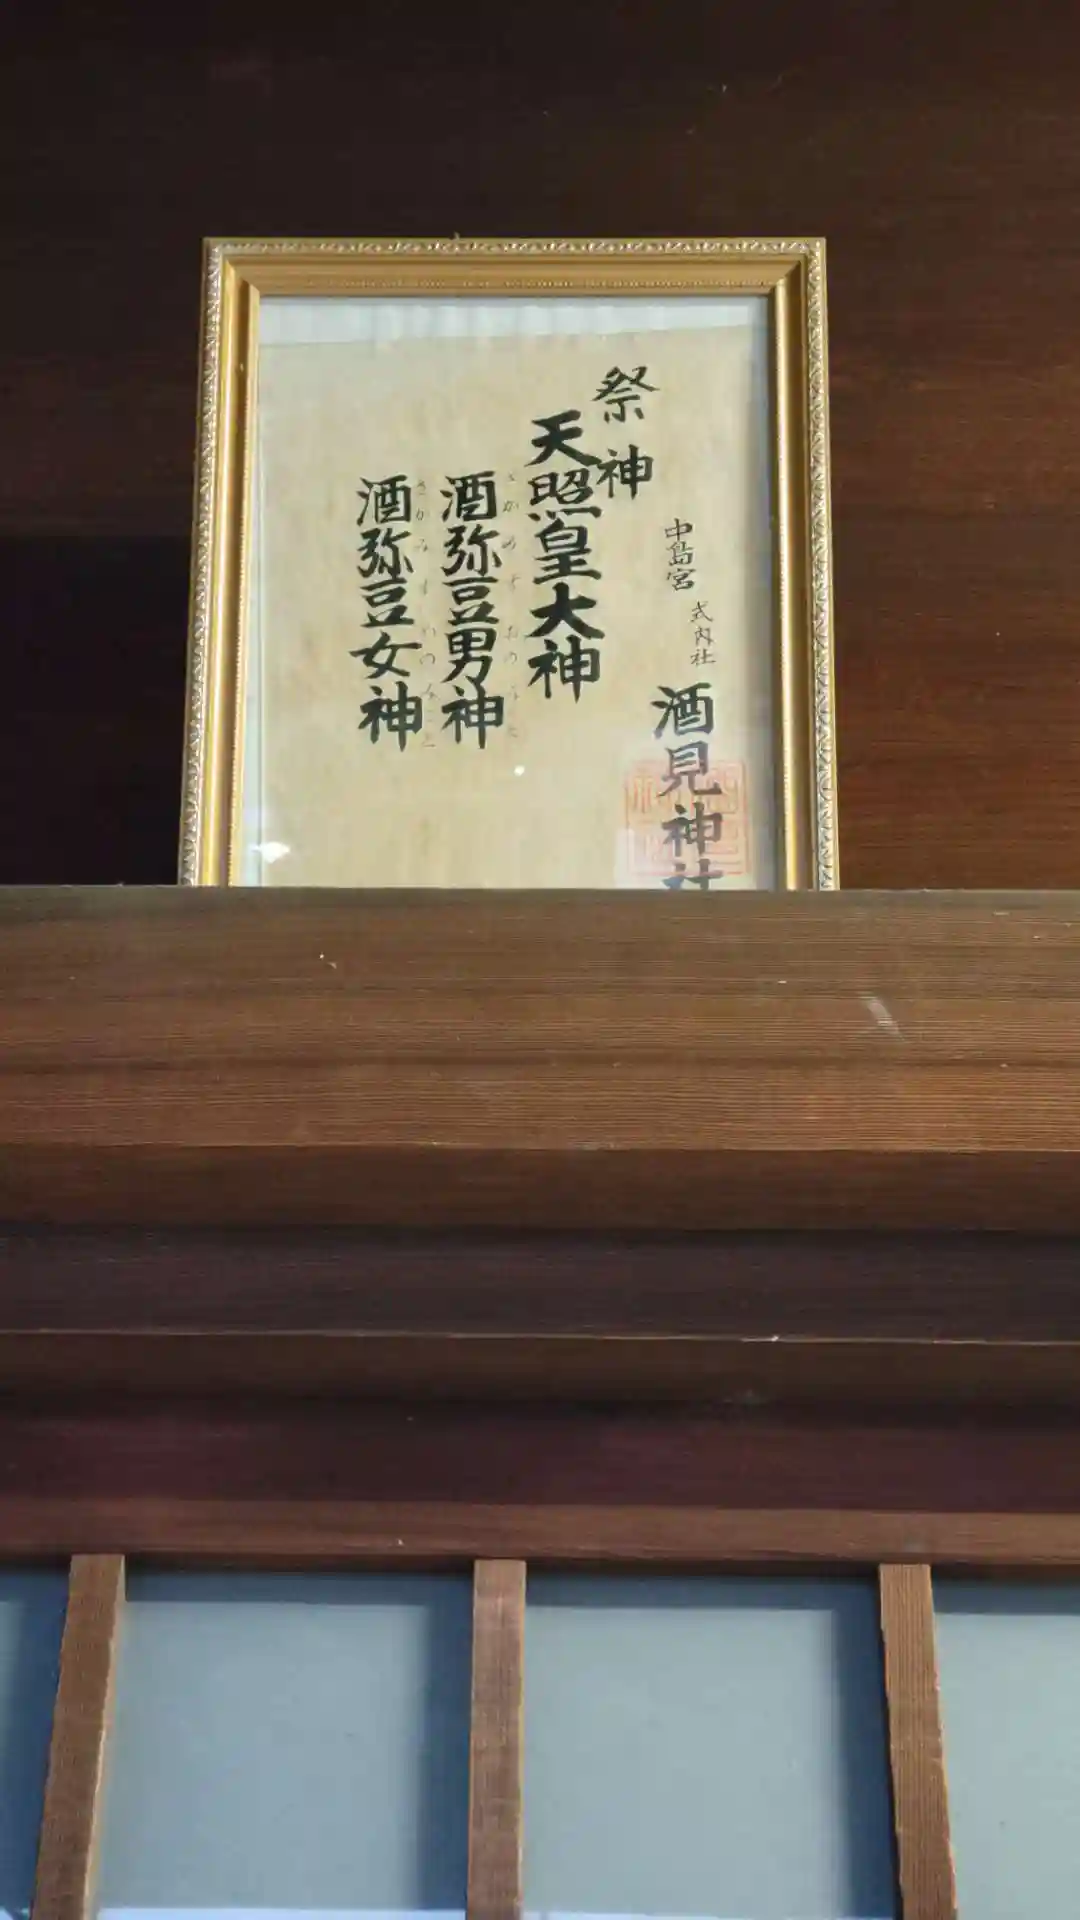 中島宮
式内社
酒見神社
祭神
天照皇大神
酒弥豆男神
酒弥豆女神